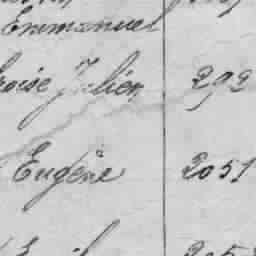 Emmanuel
roise Julien 292
Eugène 2051